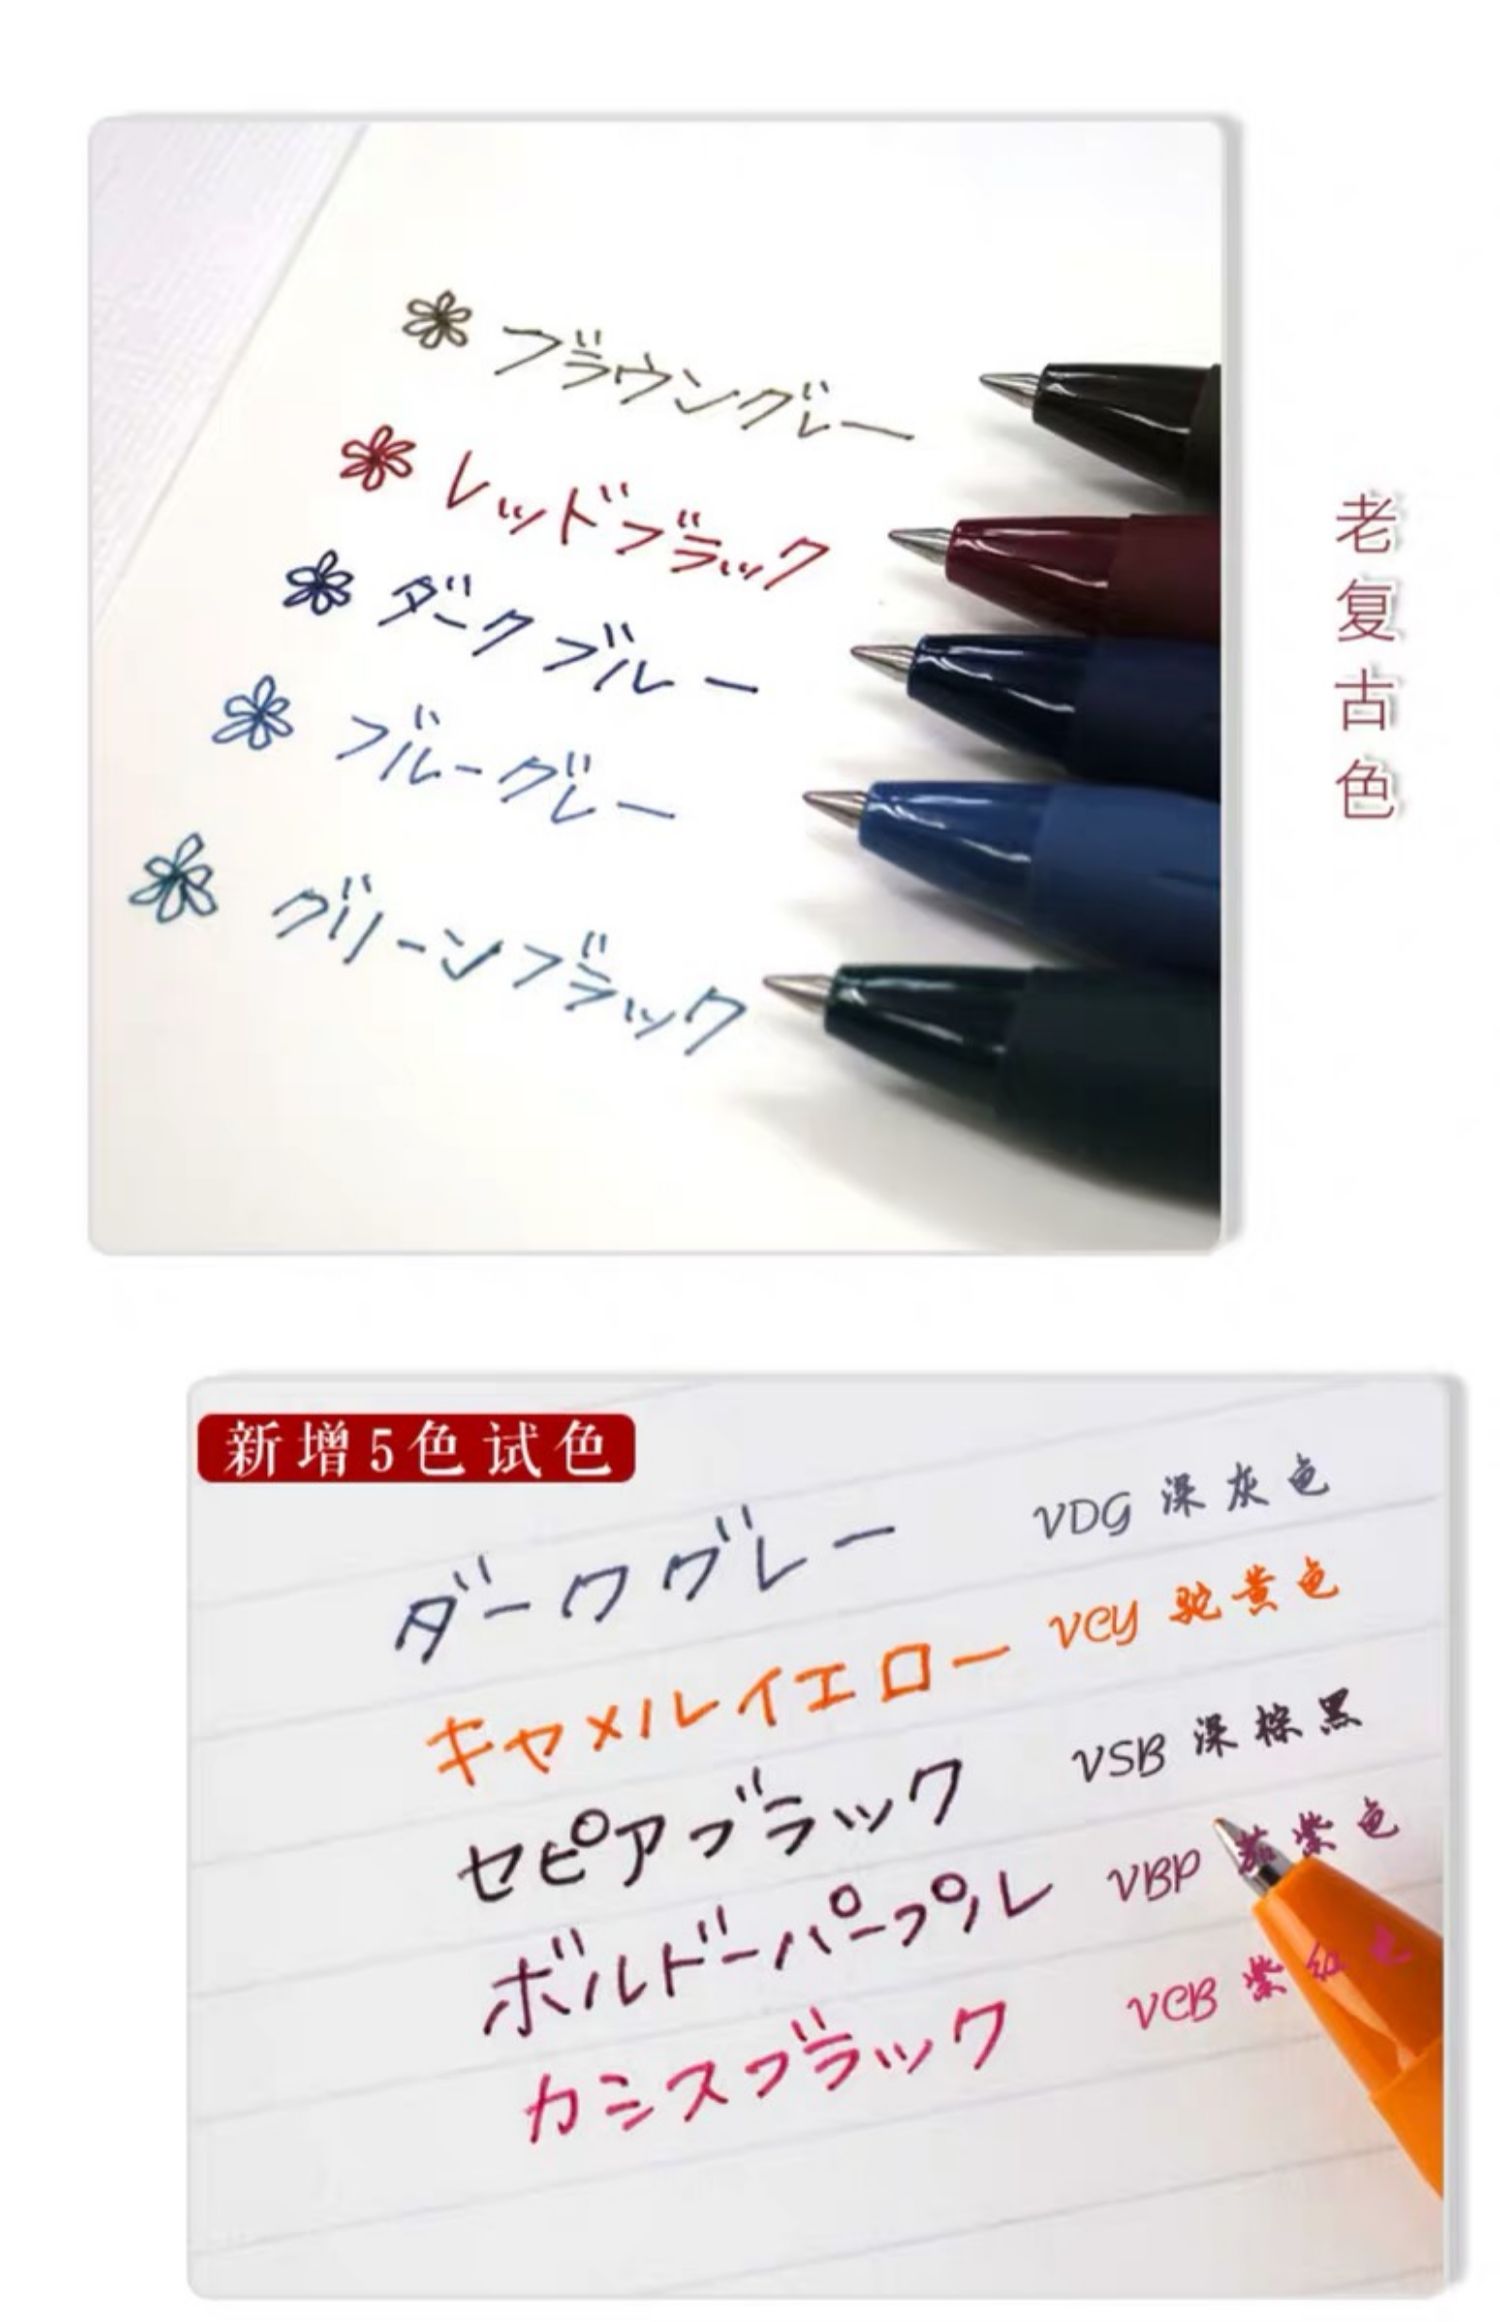 ブラウングレー
レッドブラック
ダークブルー
ブルーグレー
グリーンブラック
老复古色
新增5色试色
ダークグレー VDG 深灰色
キャメルイエロー VCY 驼黄色
セピアブラック VSB 深棕黑
ボルドーパープル VBP 紫色
カシスブラック VCB 紫红色